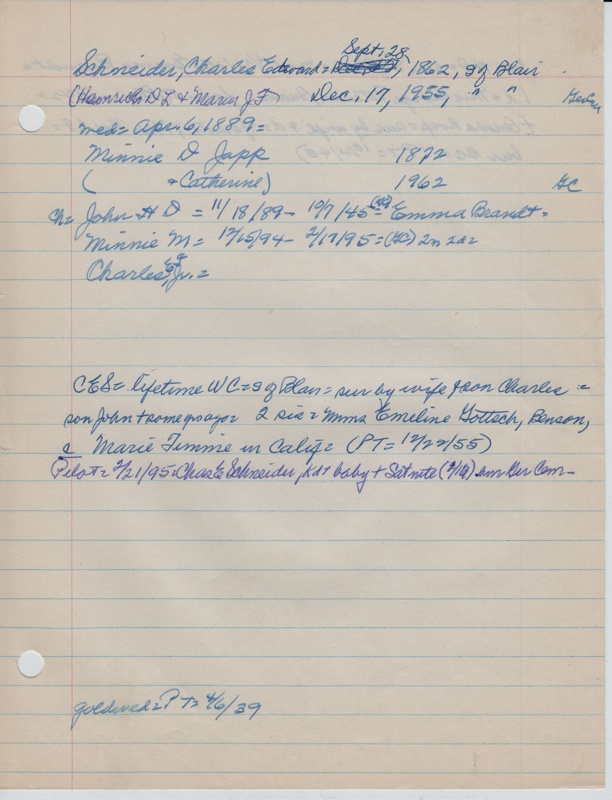 Sept. 28
Schneider, Charles Edward = Dec. 17, 1862, s of Blair
(Heinrich D L & Maria J F) Dec. 17, 1955, " "
wed = Apr. 6, 1889 =
Minnie D Japp 1872
( + Catherine) 1962 GC
ch = John H D = 11/18/89 - 10/7/45 = Emma Brandt =
Minnie M = 12/15/94 - 2/17/95 = (GC) 2n 2d =
Charles E, Jr. =
CES = lifetime WC = s of Blair = sur by wife & son Charles =
son John + some yrs ago = 2 sis = Mmes Emeline Gottsch, Benson,
& Marie Timme in Calif = (PT = 12/22/55)
Pilot = 2/21/95 = Chas E Schneider, Kd+ baby + Sat nite (2/16) am Ger Cem -
goldwed = PT = 4/6/39